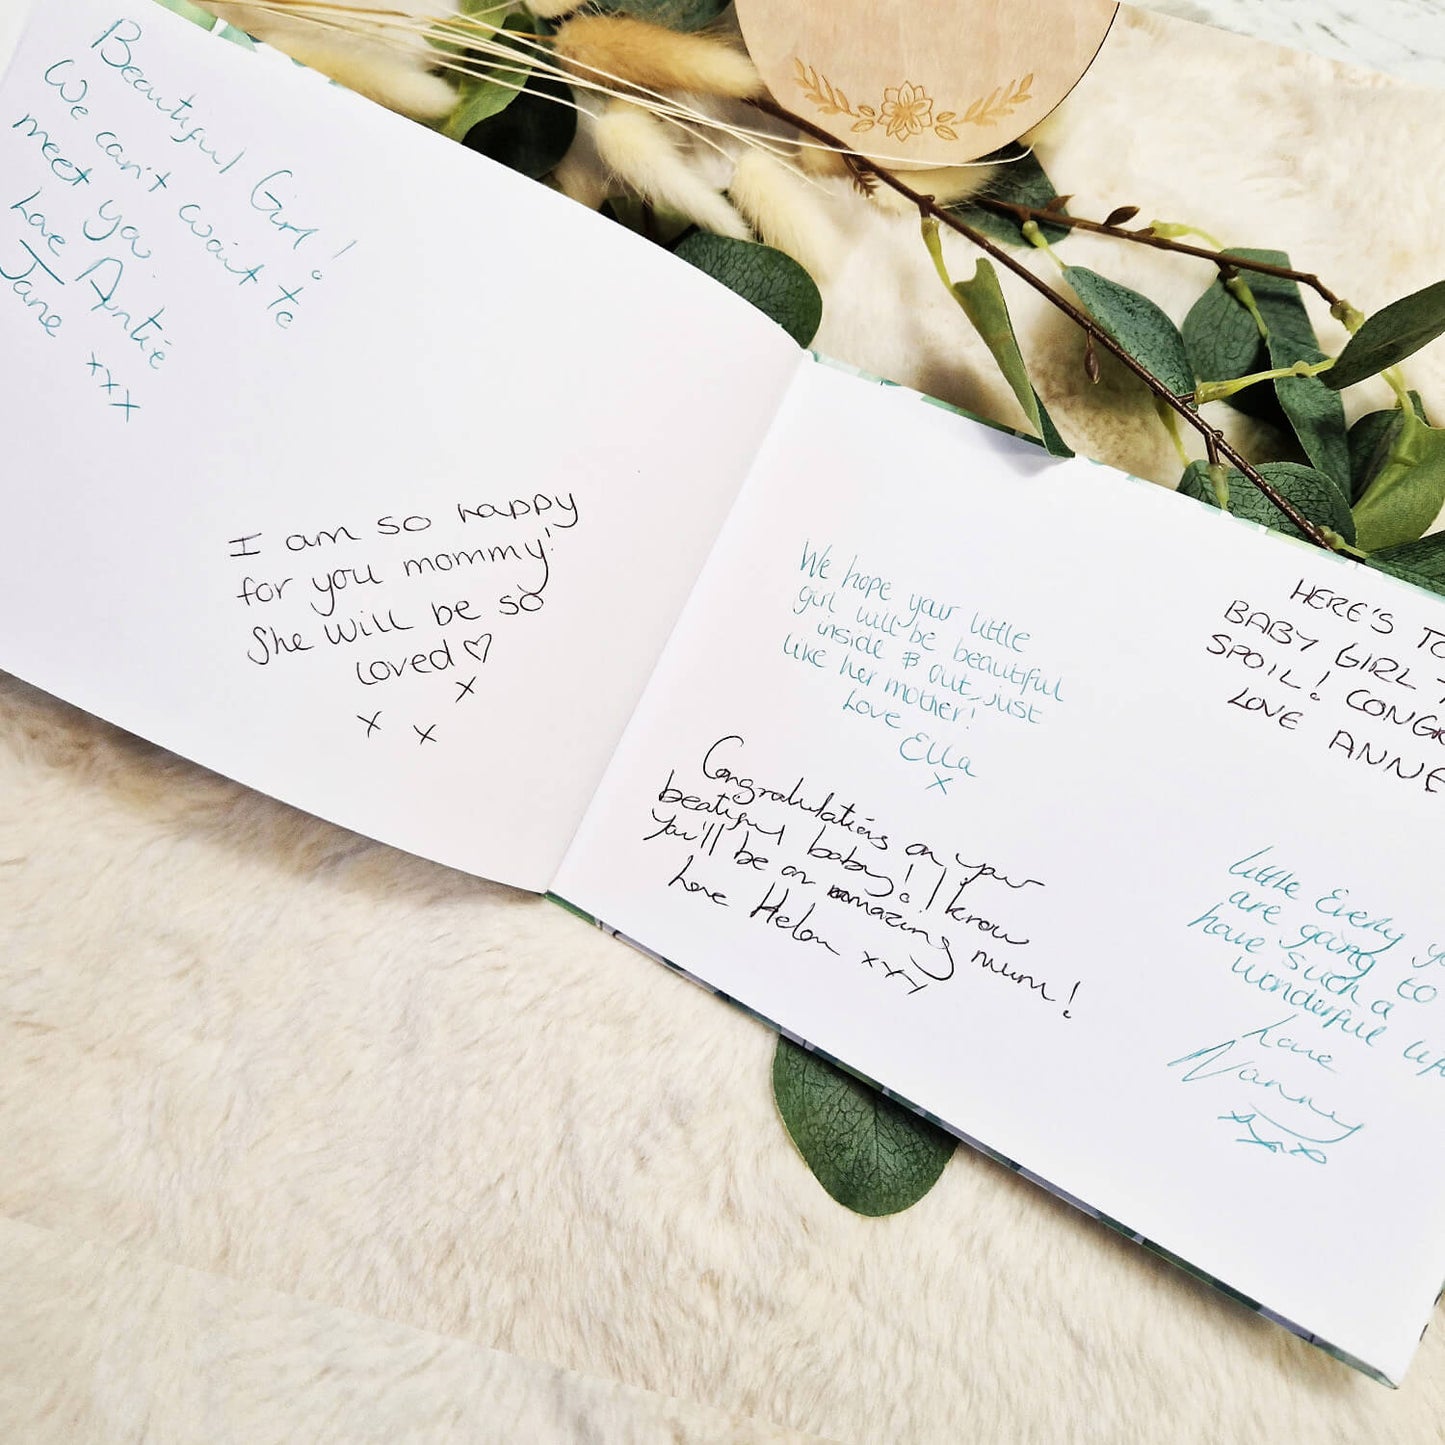 Beautiful Girl!
We can't wait to
meet you.
Love Auntie
Jane xxx
I am so happy
for you mommy!
She will be so
loved ♡
x
x x
We hope your little
girl will be beautiful
inside & out, just
like her mother!
Love
Ella
x
Congratulations on your
beatiful baby! I know
you'll be an amazing mum!
Love Helen xxx
HERE'S TO
BABY GIRL
SPOIL! CONGR
LOVE ANNE
little Everly
are going to
have such a
wonderful life
Love
Nanny
xxxx